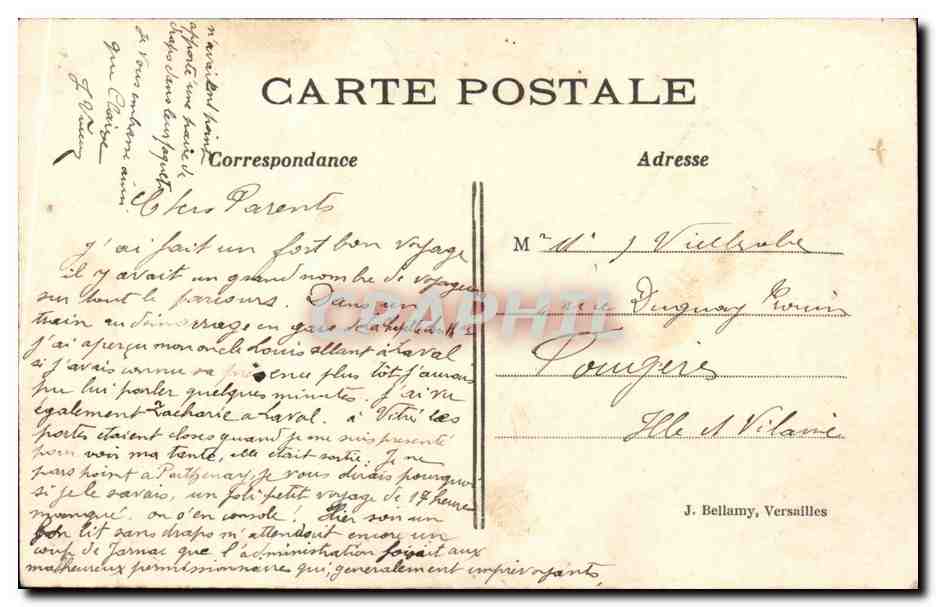 CARTE POSTALE
Correspondance
Adresse
Chers Parents
j'ai fait un fort bon voyage
il y avait un grand nombre de voyageurs
sur tout le parcours. Dans un
train au démarrage en gare de la
j'ai aperçu mon oncle Louis allant à Laval
si j'avais connu sa présence plus tôt j'aurais
pu lui parler quelques minutes. J'ai vu
également Zacharie a Laval. à Vitré les
portes étaient closes quand je me suis présenté
pour voir ma tante, elle était sortie. Je ne
pars point a Parthenay, je vous dirais pourquoi
si je le savais, un joli petit voyage de 17 heure
manqué. on s'en console! Hier soir un
bon lit sans draps m'attendait encore un
coup de Jarnac que l'administration faisait aux
malheureux permissionnaires qui, generalement imprévoyants,
n'avaient point
apporté une paire de
draps dans leurs paquets
Je vous embrasse ainsi
que Claire
J.
M
rue Duguay Trouin
Fougères
Ille et Vilaine
J. Bellamy, Versailles
CPAPHIL